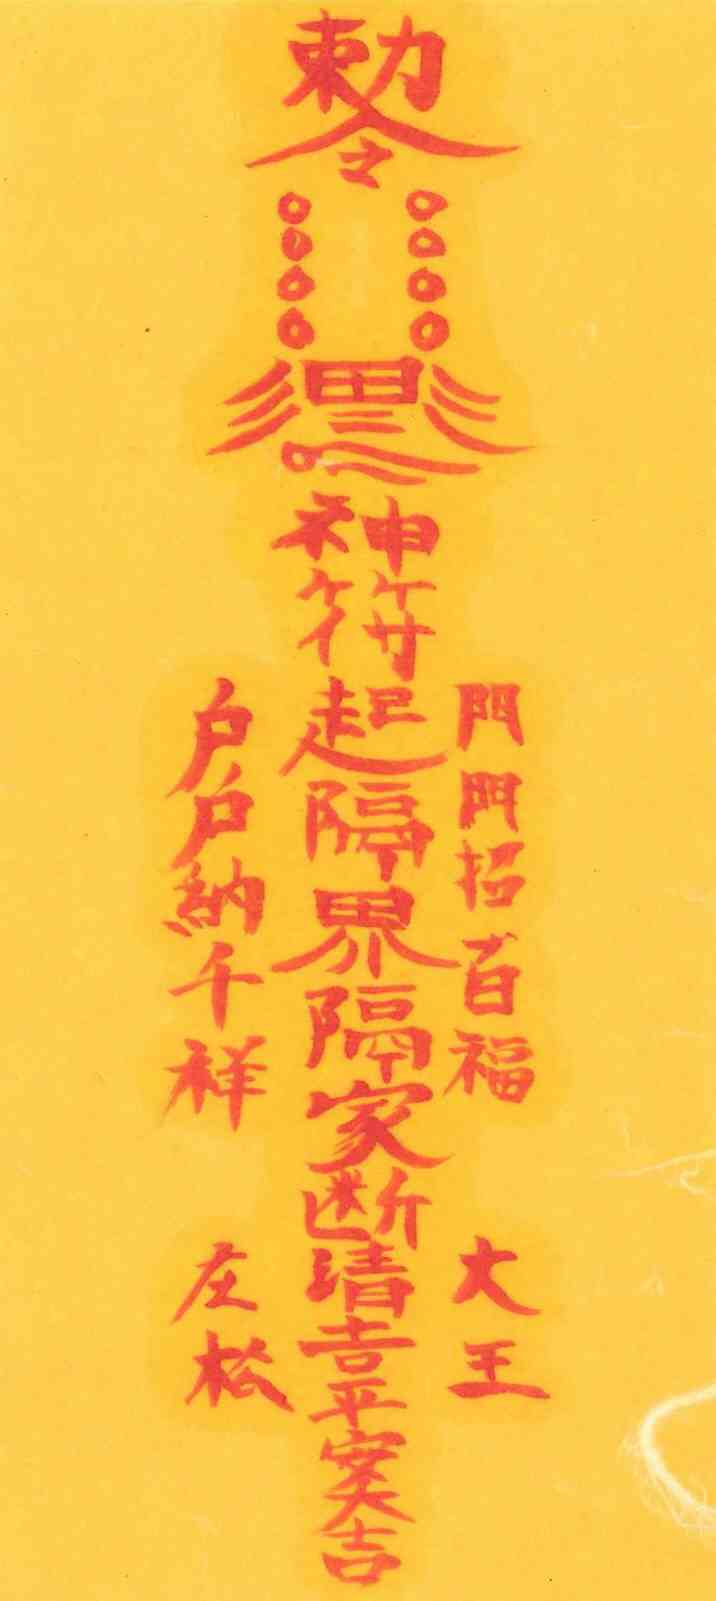 勅令
神符起隔界隔家断清吉平安大吉
門門招百福
户户納千祥
大王
庄松